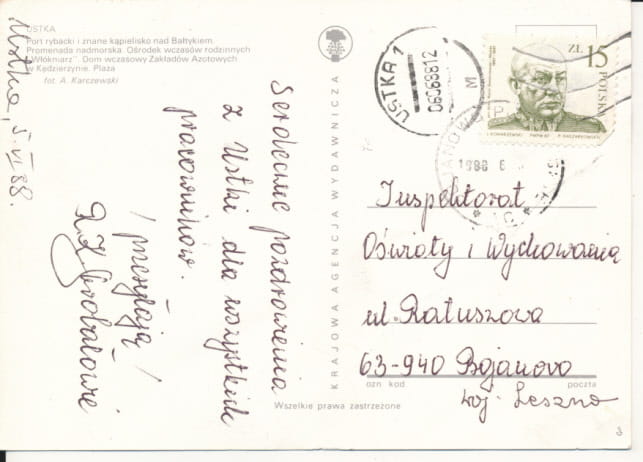 USTKA
Port rybacki i znane kąpielisko nad Bałtykiem.
Promenada nadmorska. Ośrodek wczasów rodzinnych
„Włókniarz”. Dom wczasowy Zakładów Azotowych
w Kędzierzynie. Plaża
fot. A. Karczewski
Ustka, 5.VI.88.
Serdeczne pozdrowienia
z Ustki dla wszystkich
pracowników.
/przesyłają/
KRAJOWA AGENCJA WYDAWNICZA
USTKA 1
06068812
ZŁ 15
POLSKA
1988
Inspektorat
Oświaty i Wychowania
ul. Ratuszowa
63-940 Bojanowo
ozn kod
poczta
woj. Leszno
Wszelkie prawa zastrzeżone